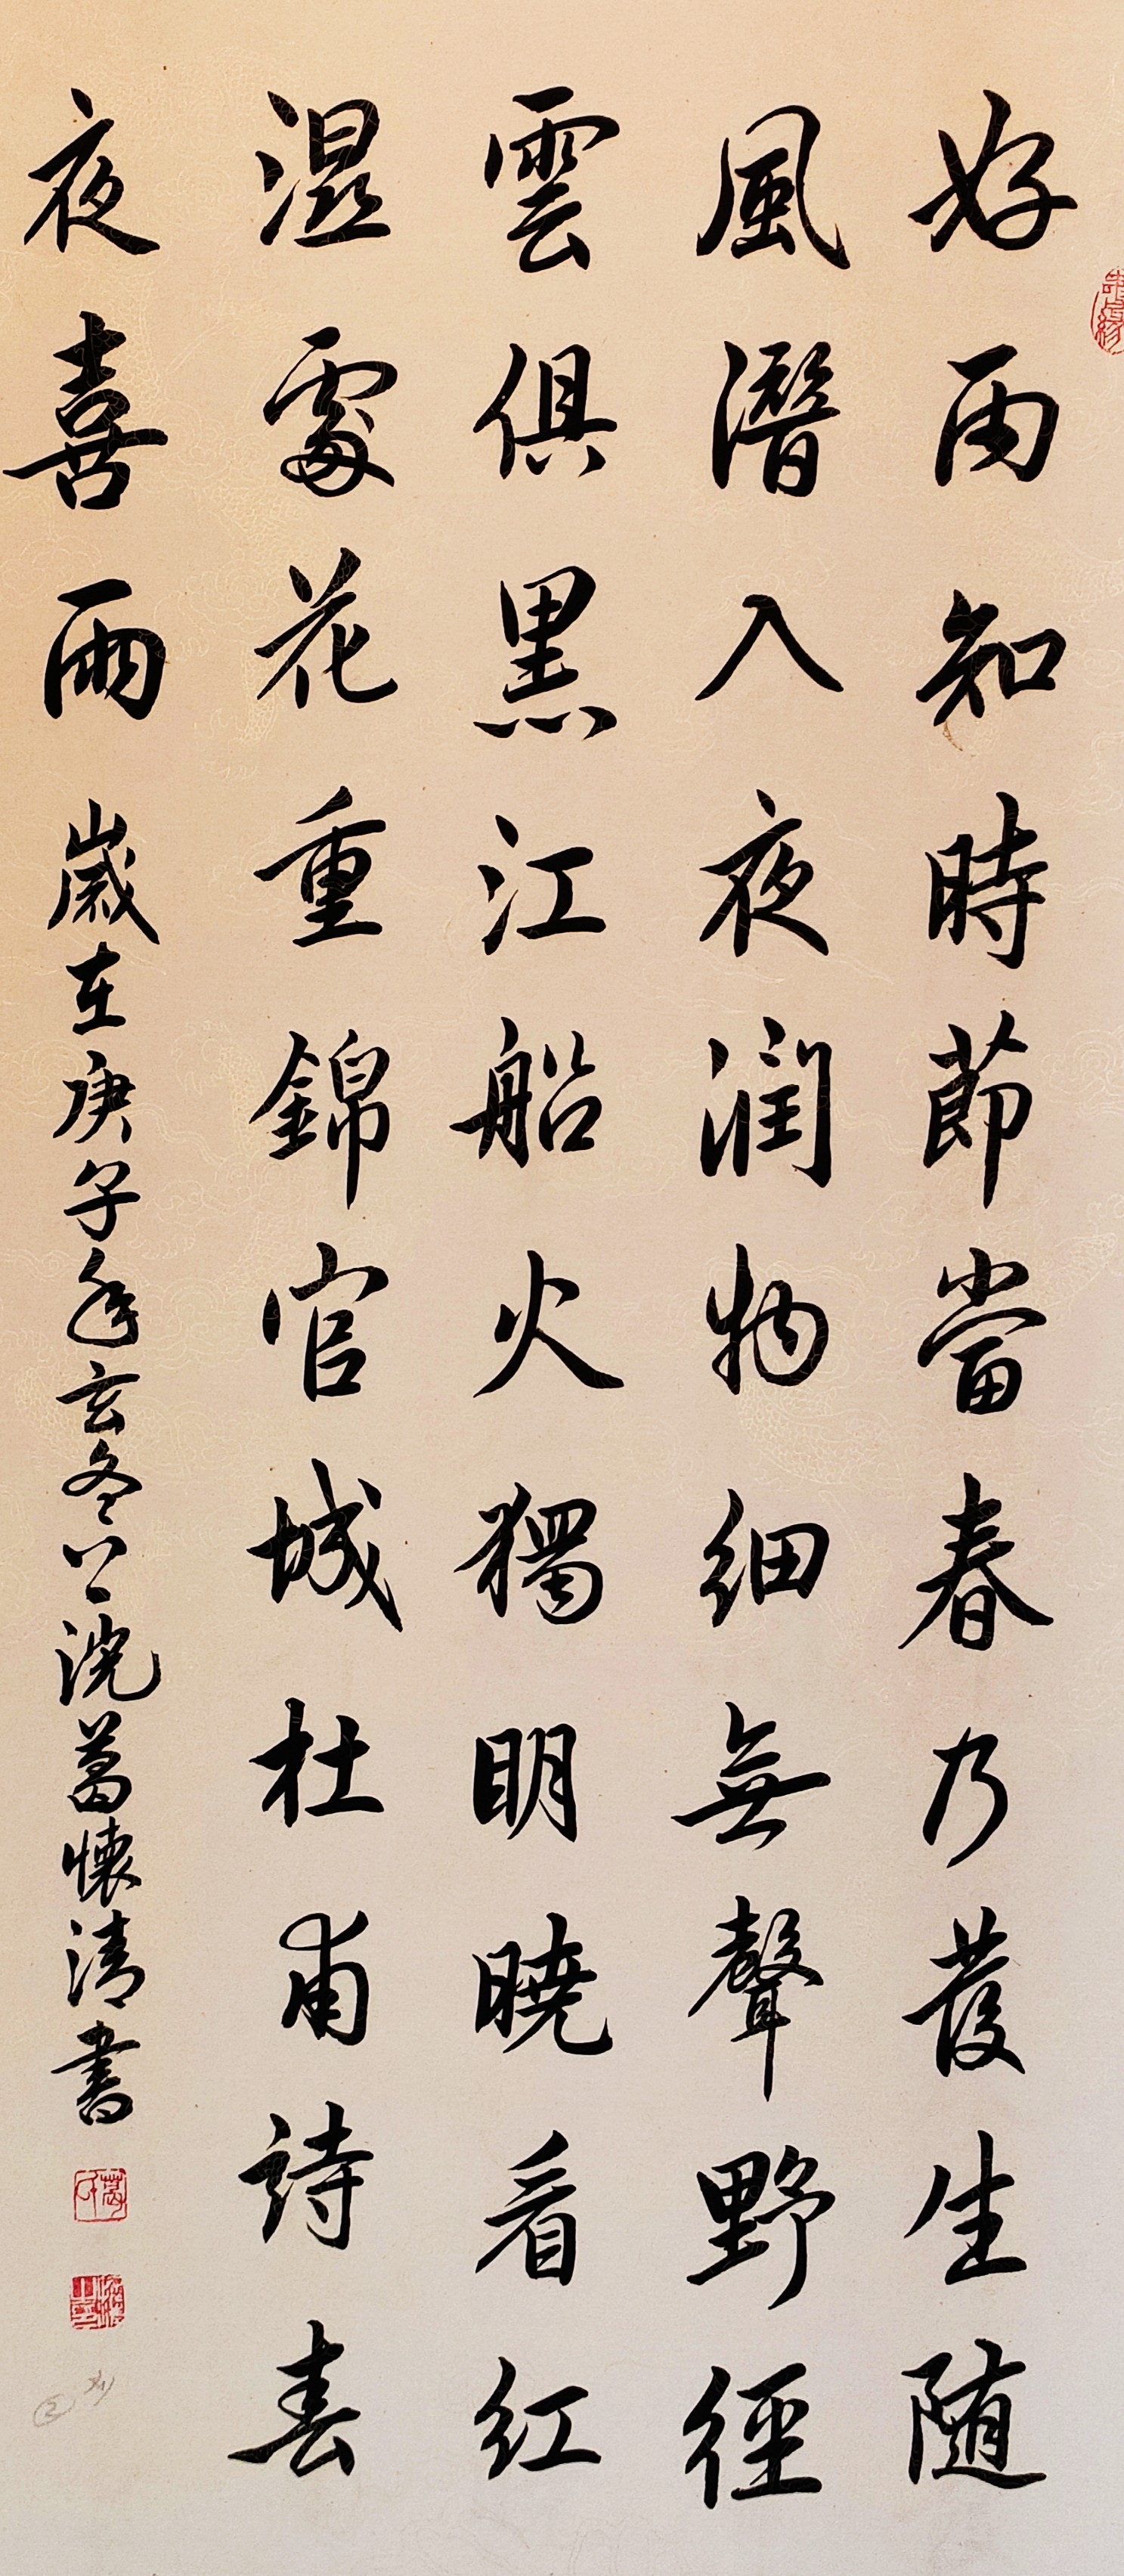 好雨知時節當春乃發生随
風潛入夜潤物細無聲野徑
雲俱黑江船火獨明曉看红
濕處花重錦官城杜甫詩春
夜喜雨 歲在庚子年玄冬於浣葛懷清書